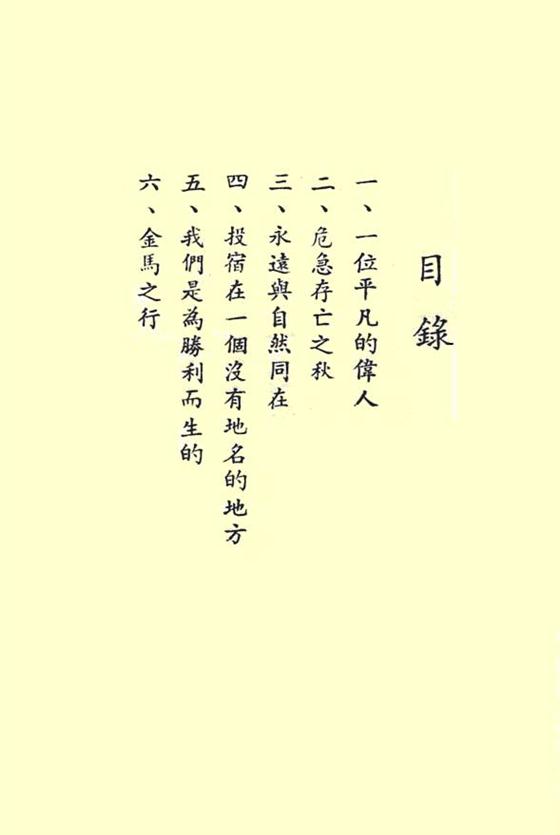 目錄
一、一位平凡的偉人
二、危急存亡之秋
三、永遠與自然同在
四、投宿在一個沒有地名的地方
五、我們是為勝利而生的
六、金馬之行